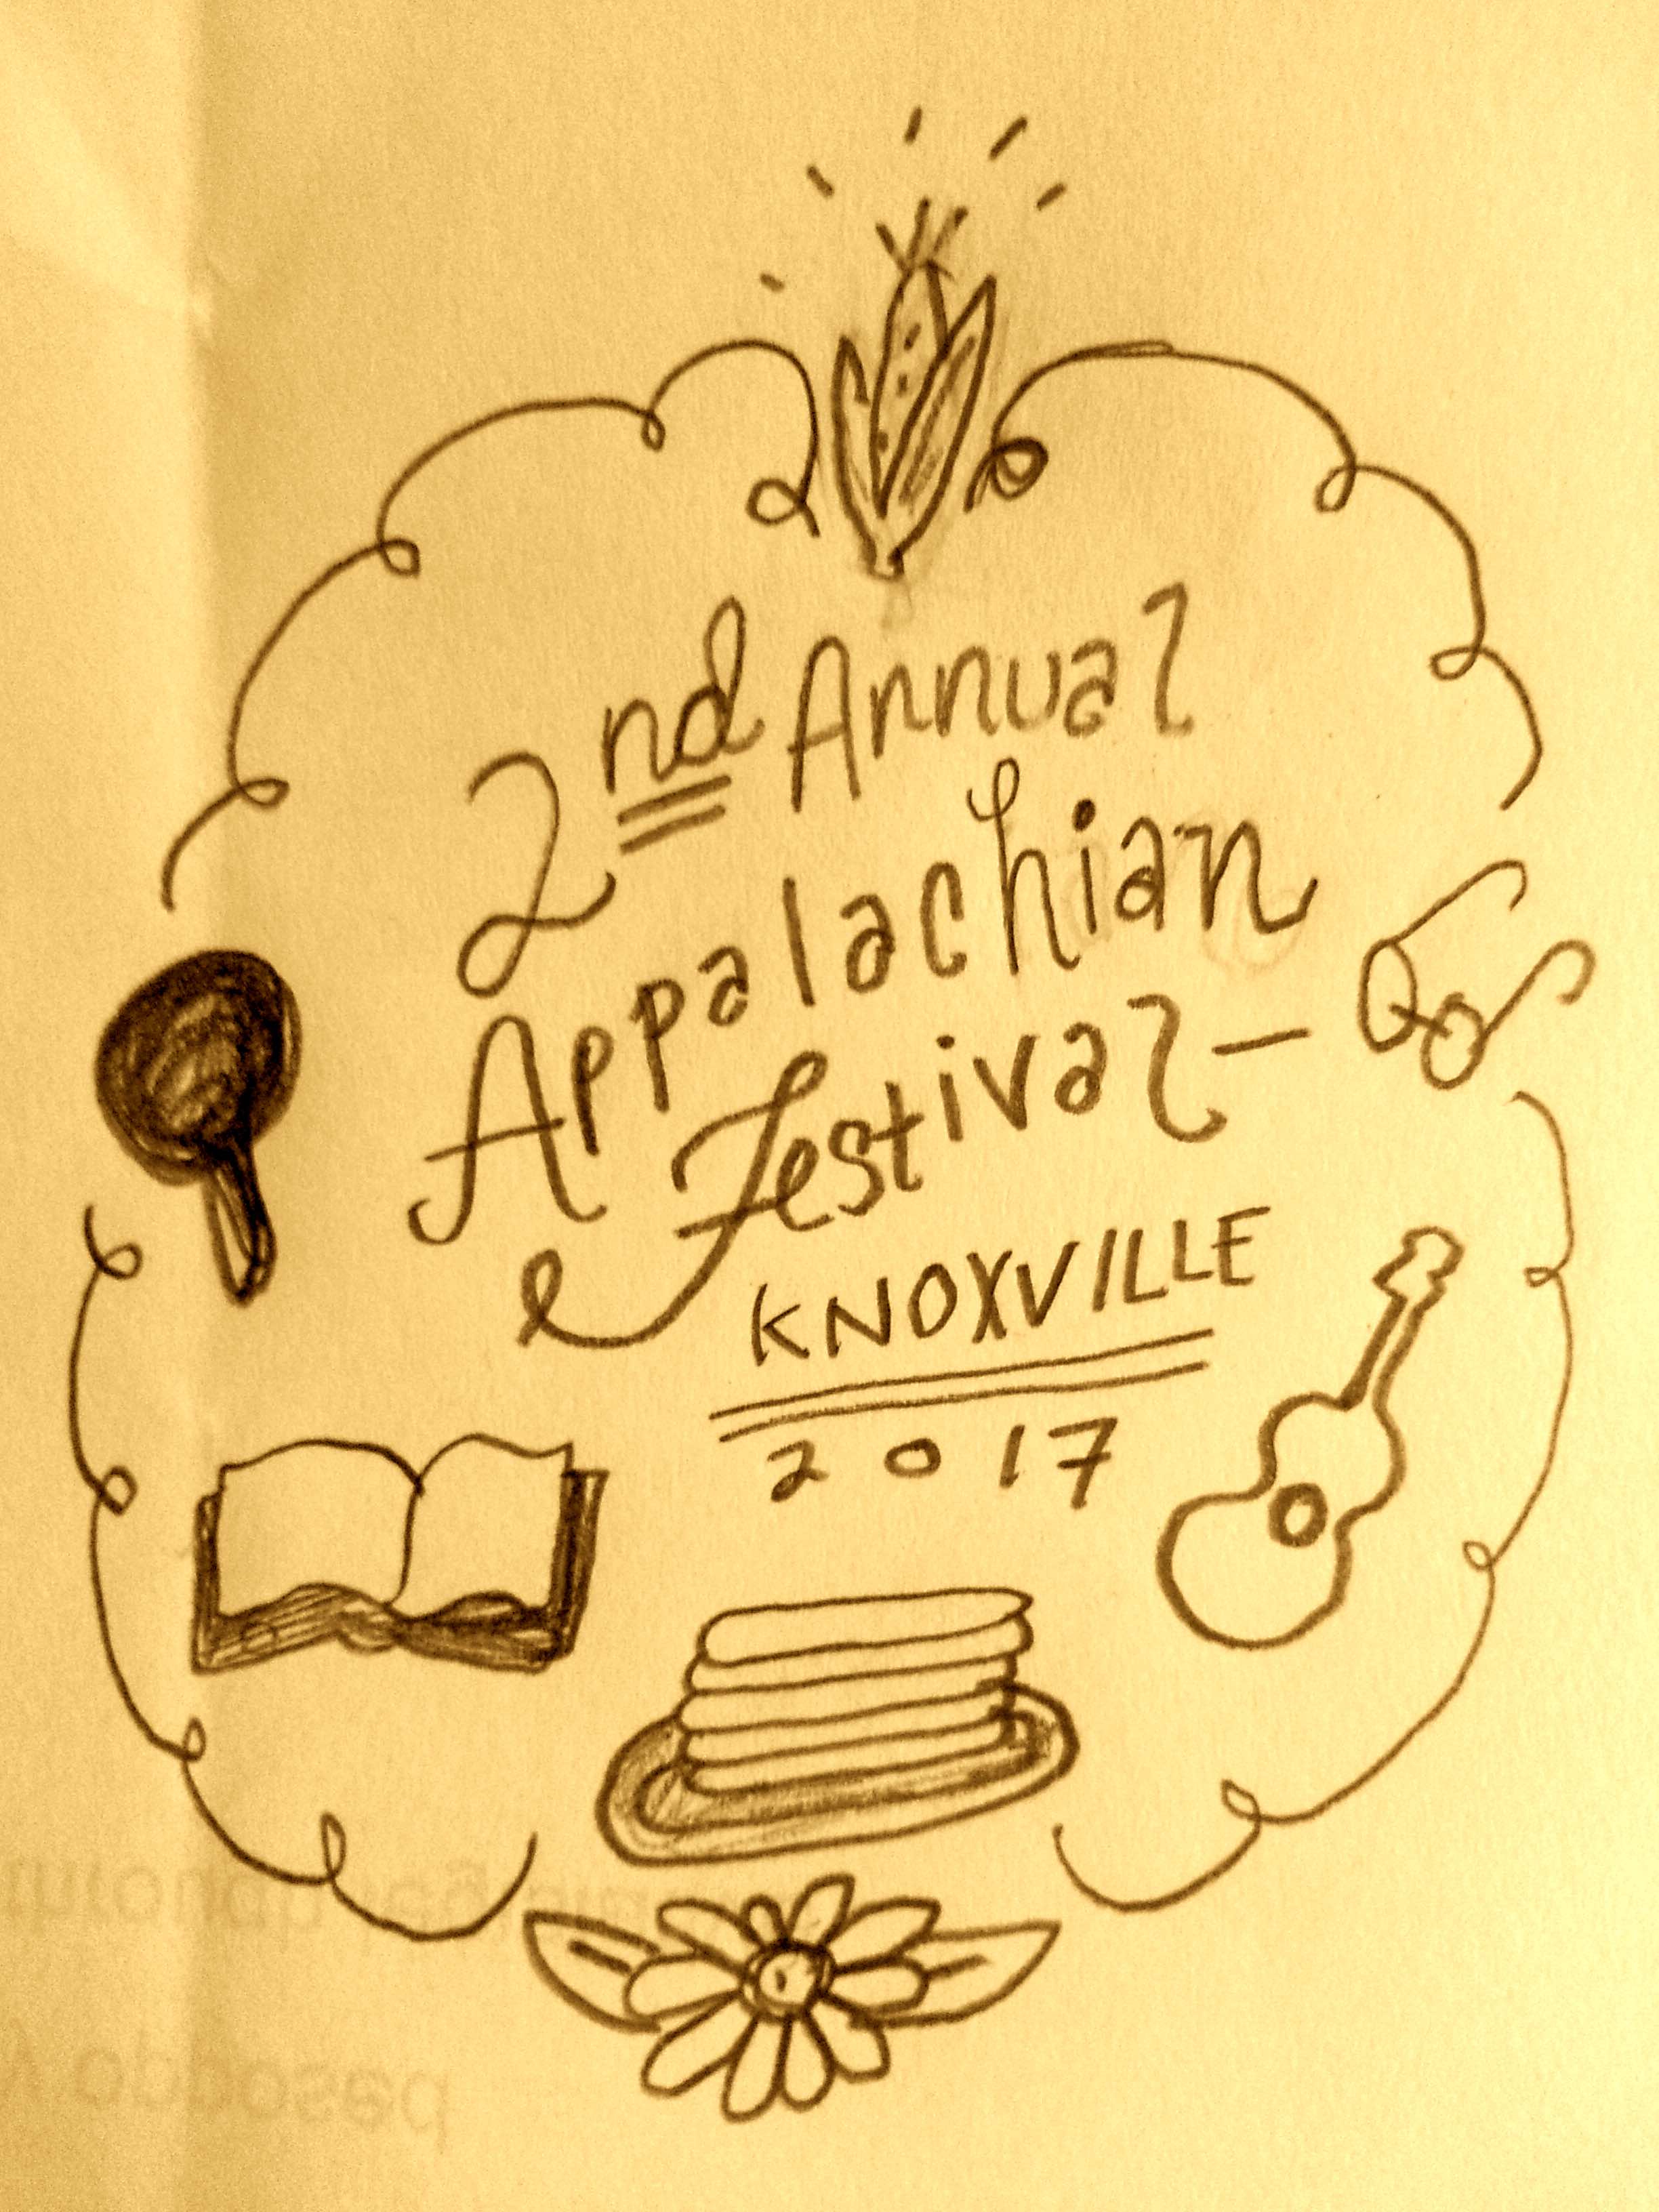 2nd Annual
Appalachian
Festival-
KNOXVILLE
2017